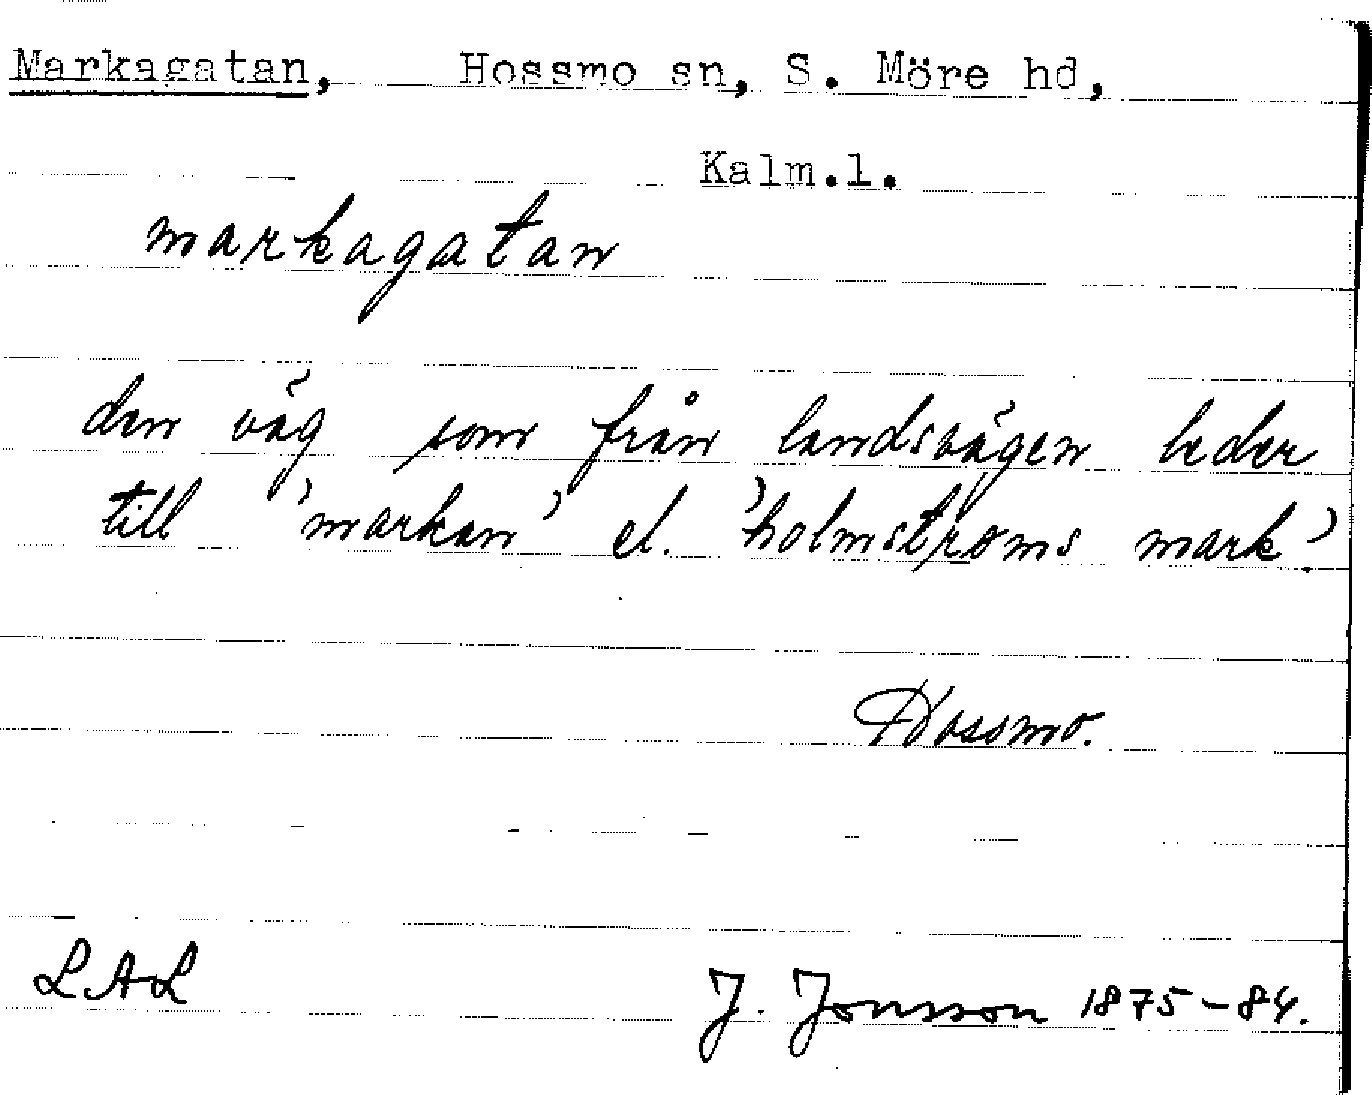 Markagatan, Hossmo sn, S. Möre hd,
Kalm.l.
markagatan
den väg som från landsvägen leder
till 'markan' el. 'holmströms mark'.
Hossmo.
LAL
J. Jonsson 1875-84.